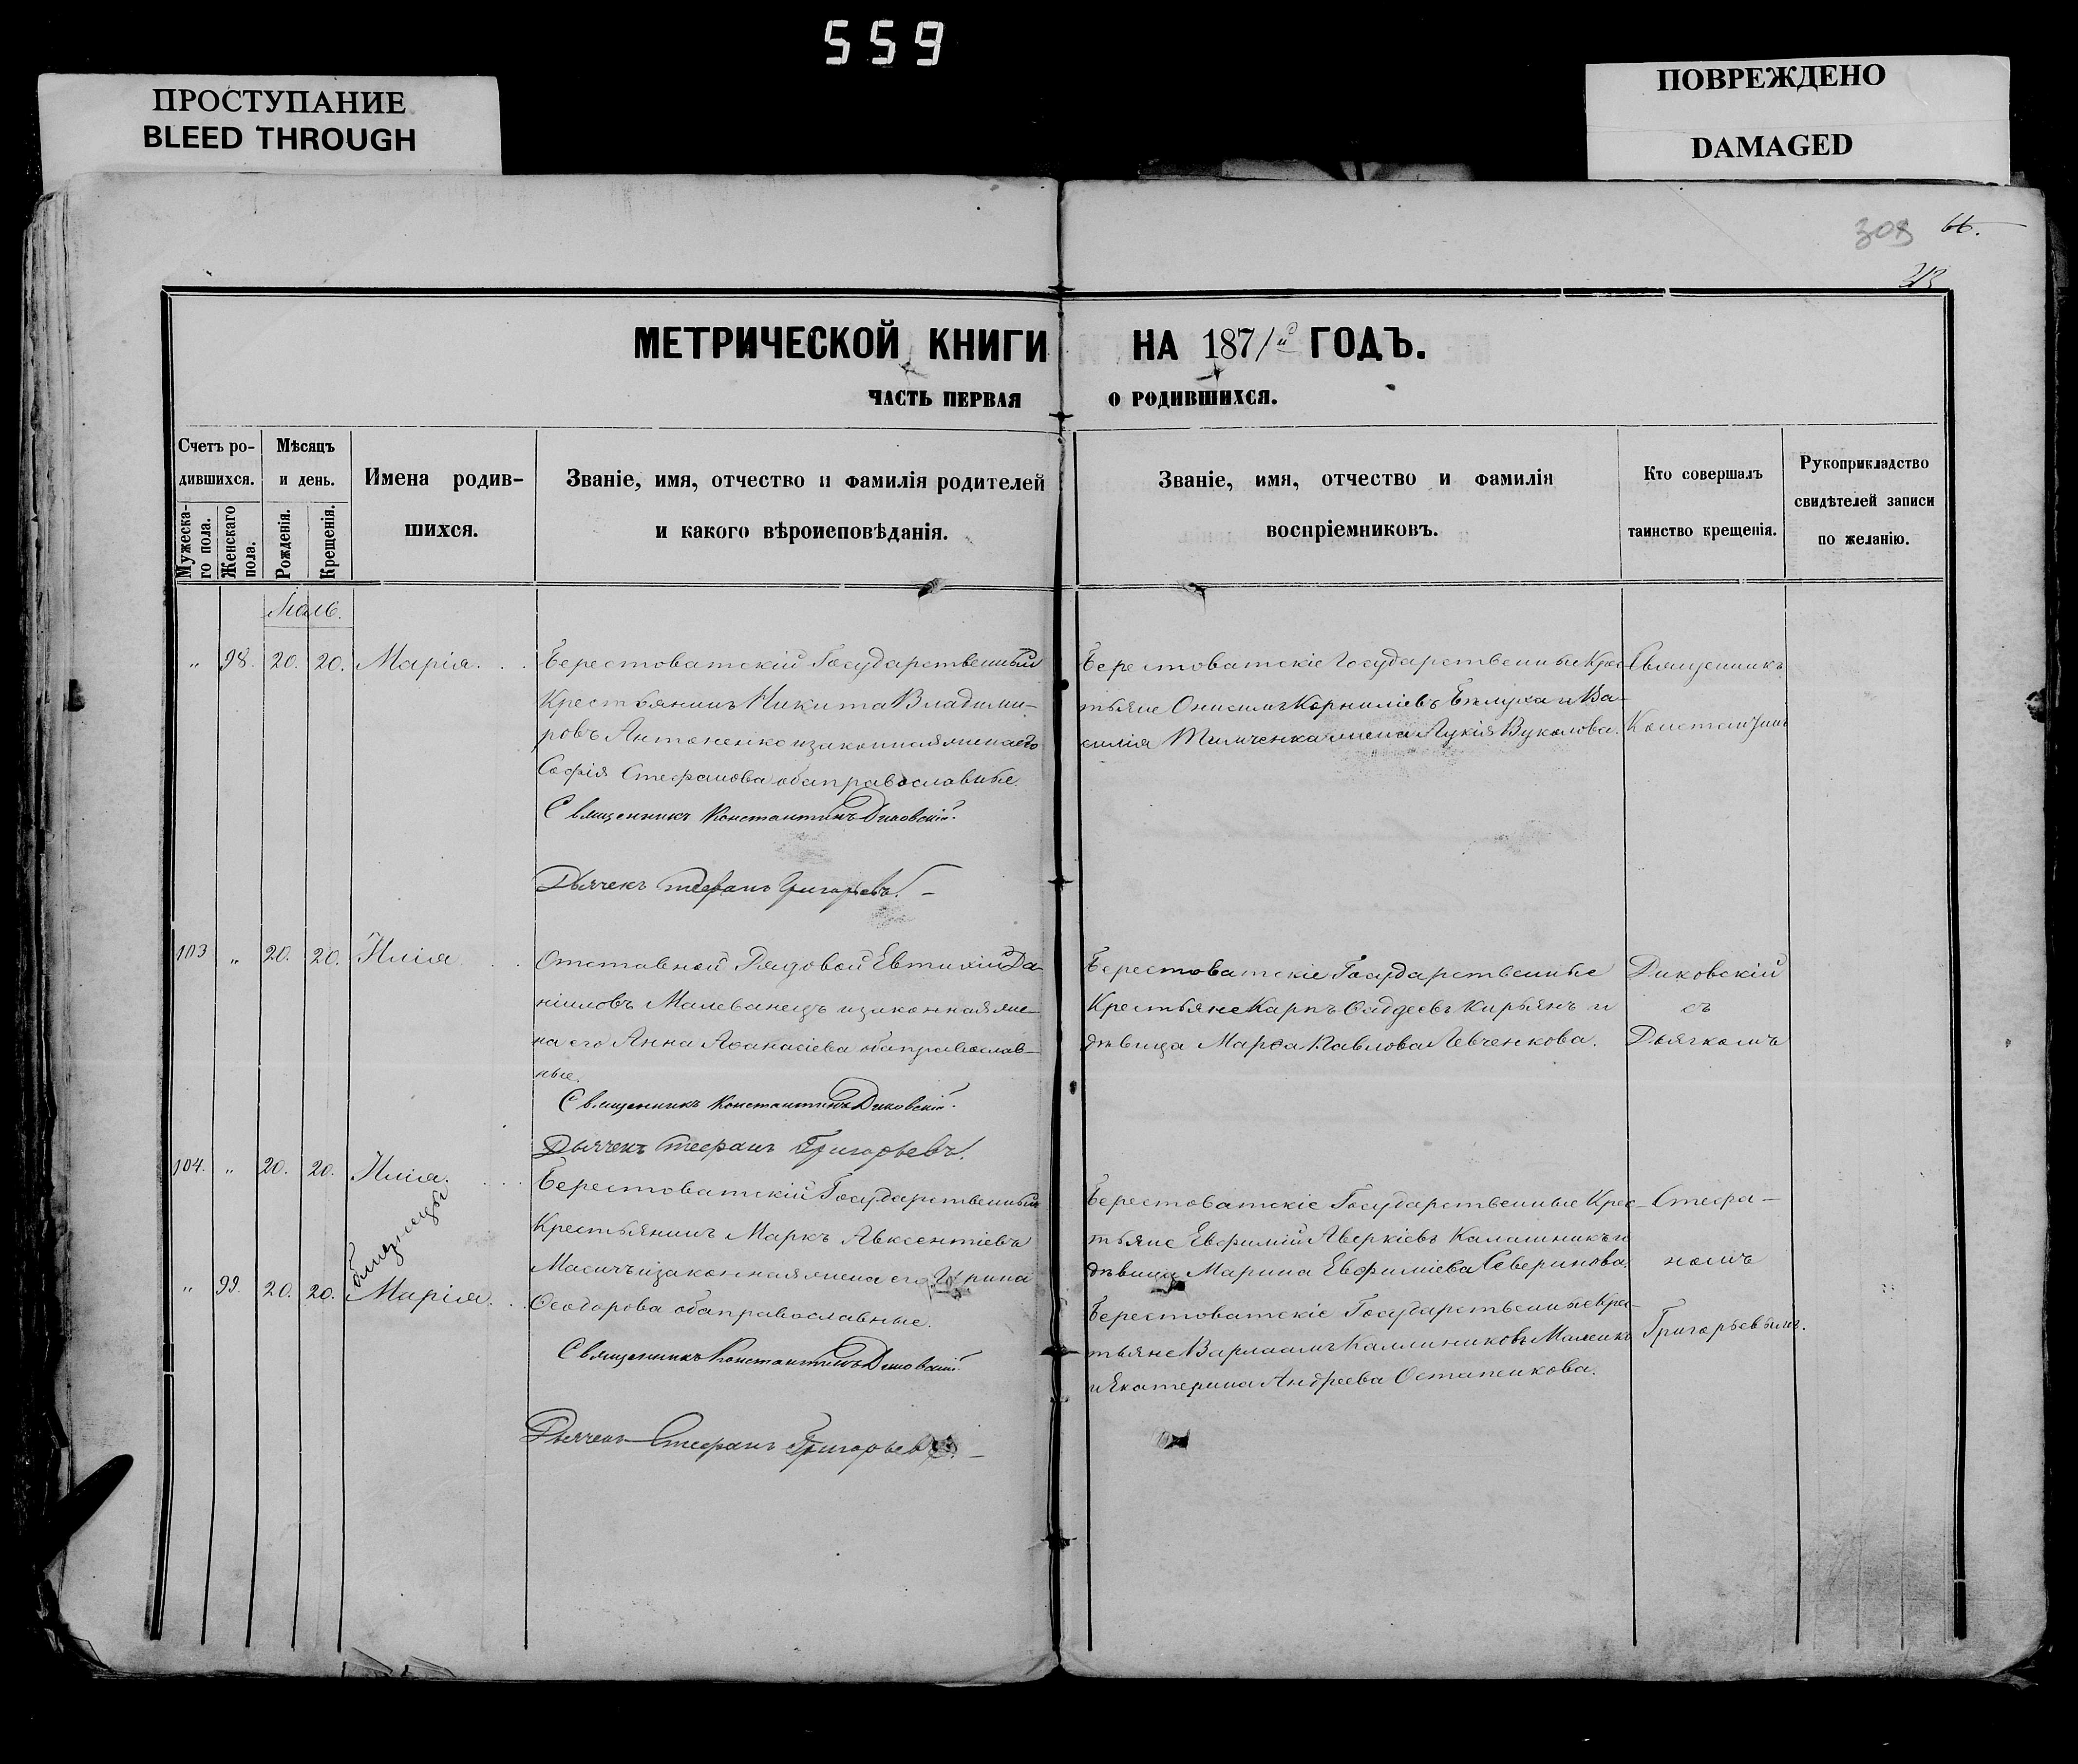 559
ПРОСТУПАНИЕ
BLEED THROUGH
ПОВРЕЖДЕНО
DAMAGED
309
МЕТРИЧЕСКОЙ КНИГИ НА 1871й ГОДЪ.
ЧАСТЬ ПЕРВАЯ О РОДИВШИХСЯ.
Счетъ ро-
дившихся.
Мужеска-
го пола.
Женскаго
пола.
Мѣсяцъ
и день.
Рожденія.
Крещенія.
Имена родив-
шихся.
Званіе, имя, отчество и фамилія родителей
и какого вѣроисповѣданія.
Званіе, имя, отчество и фамилія
воспріемниковъ.
Кто совершалъ
таинство крещенія.
Рукоприкладство
свидѣтелей записи
по желанію.
" 98. 20. 20. Марія.
Берестоватскій Государственный
Крестьянинъ Никита Владими-
ровъ Антоненко и законная жена его
Софія Стефанова оба православные.
Священникъ Константинъ Диковскій.
Дьячекъ Стефанъ Григорьевъ.
Берестоватскіе Государственные Крес-
тьяне Онисимъ Корниліевъ и Ва-
силія жена Лукія Вуколова.
Священникъ
Константинъ
103 " 20. 20. Илія
Отставной Рядовой Евтихій Да-
ніиловъ Малеванецъ и законная же-
на его Анна Аѳанасіева оба православ-
ные.
Священникъ Константинъ Диковскій.
Дьячекъ Стефанъ Григорьевъ.
Берестоватскіе Государственные
Крестьяне Карпъ Ѳаддеевъ Кирьянъ и
дѣвица Марѳа Павлова Левченкова.
Диковскій
съ
Дьячкомъ
104. " 20. 20. Илія.
близнецы
" 99. 20. 20. Марія.
Берестоватскій Государственный
Крестьянинъ Маркъ Авксентіевъ
и законная жена его Ирина
Ѳеодорова оба православные.
Священникъ Константинъ Диковскій.
Дьячекъ Стефанъ Григорьевъ.
Берестоватскіе Государственные Крес-
тьяне Евфимій Аверкіевъ Калашникъ и
дѣвица Марина Евфиміева Северинова.
Берестоватскіе Государственные Крес-
тьяне Варлаамъ Каллиниковъ
и Екатерина Андреева Остапенкова.
Стефа-
номъ
Григорьевымъ.